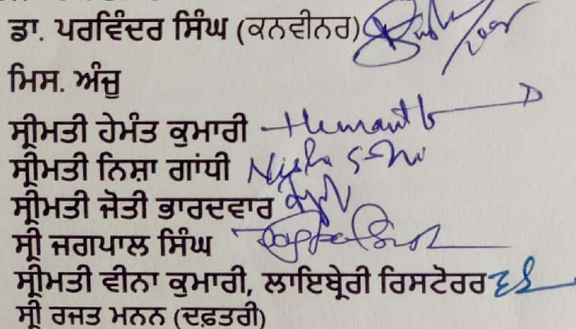 ਡਾ. ਪਰਵਿੰਦਰ ਸਿੰਘ (ਕਨਵੀਨਰ)
ਮਿਸ. ਅੰਜੂ
ਸ੍ਰੀਮਤੀ ਹੇਮੰਤ ਕੁਮਾਰੀ Hemant
ਸ੍ਰੀਮਤੀ ਨਿਸ਼ਾ ਗਾਂਧੀ Nisha
ਸ੍ਰੀਮਤੀ ਜੋਤੀ ਭਾਰਦਵਾਰ
ਸ੍ਰੀ ਜਗਪਾਲ ਸਿੰਘ
ਸ੍ਰੀਮਤੀ ਵੀਨਾ ਕੁਮਾਰੀ, ਲਾਇਬ੍ਰੇਰੀ ਰਿਸਟੋਰਰ
ਸ੍ਰੀ ਰਜਤ ਮਨਨ (ਦਫ਼ਤਰੀ)